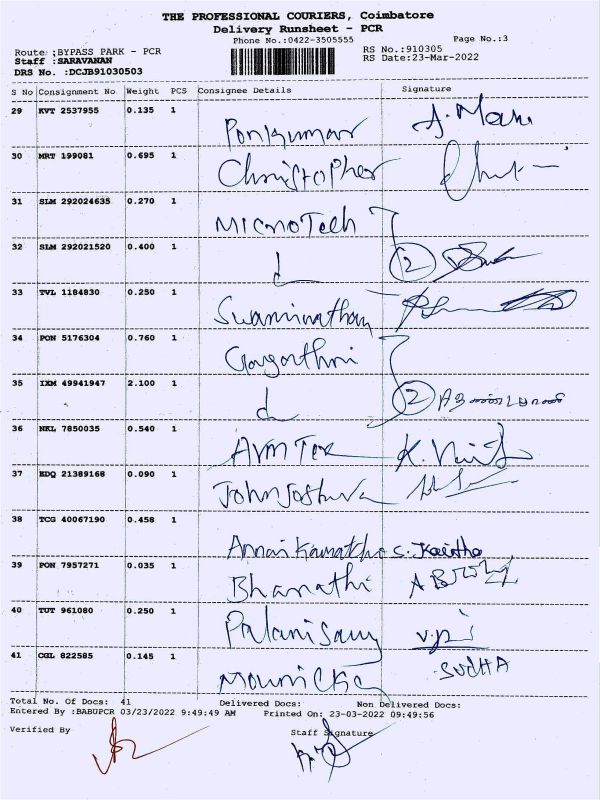 THE PROFESSIONAL COURIERS, Coimbatore
Delivery Runsheet - PCR
Phone No.:0422-3505555
Page No.:3
Route :BYPASS PARK - PCR
RS No.:910305
Staff :SARAVANAN
RS Date:23-Mar-2022
DRS No. :DCJB91030503
S No Consignment No Weight PCS Consignee Details Signature
29 KVT 2537955 0.135 1 Ponkumar A. Mani
30 MRT 199081 0.695 1 Christopher
31 SLM 292024635 0.270 1 MicroTech
32 SLM 292021520 0.400 1 2
33 TVL 1184830 0.250 1 Swaminathan
34 PON 5176304 0.760 1 Gayathri
35 IXM 49941947 2.100 1 2
36 NKL 7850035 0.540 1 Arm Tex
37 HDQ 21389168 0.090 1 John Joshuva
38 TCG 40067190 0.458 1
39 PON 7957271 0.035 1 Bharathi
40 TUT 961080 0.250 1 Palanisamy
41 CGL 822585 0.145 1 Mounicka SUDHA
Total No. Of Docs: 41 Delivered Docs: Non Delivered Docs:
Entered By :BABUPCR 03/23/2022 9:49:49 AM Printed On: 23-03-2022 09:49:56
Verified By Staff Signature